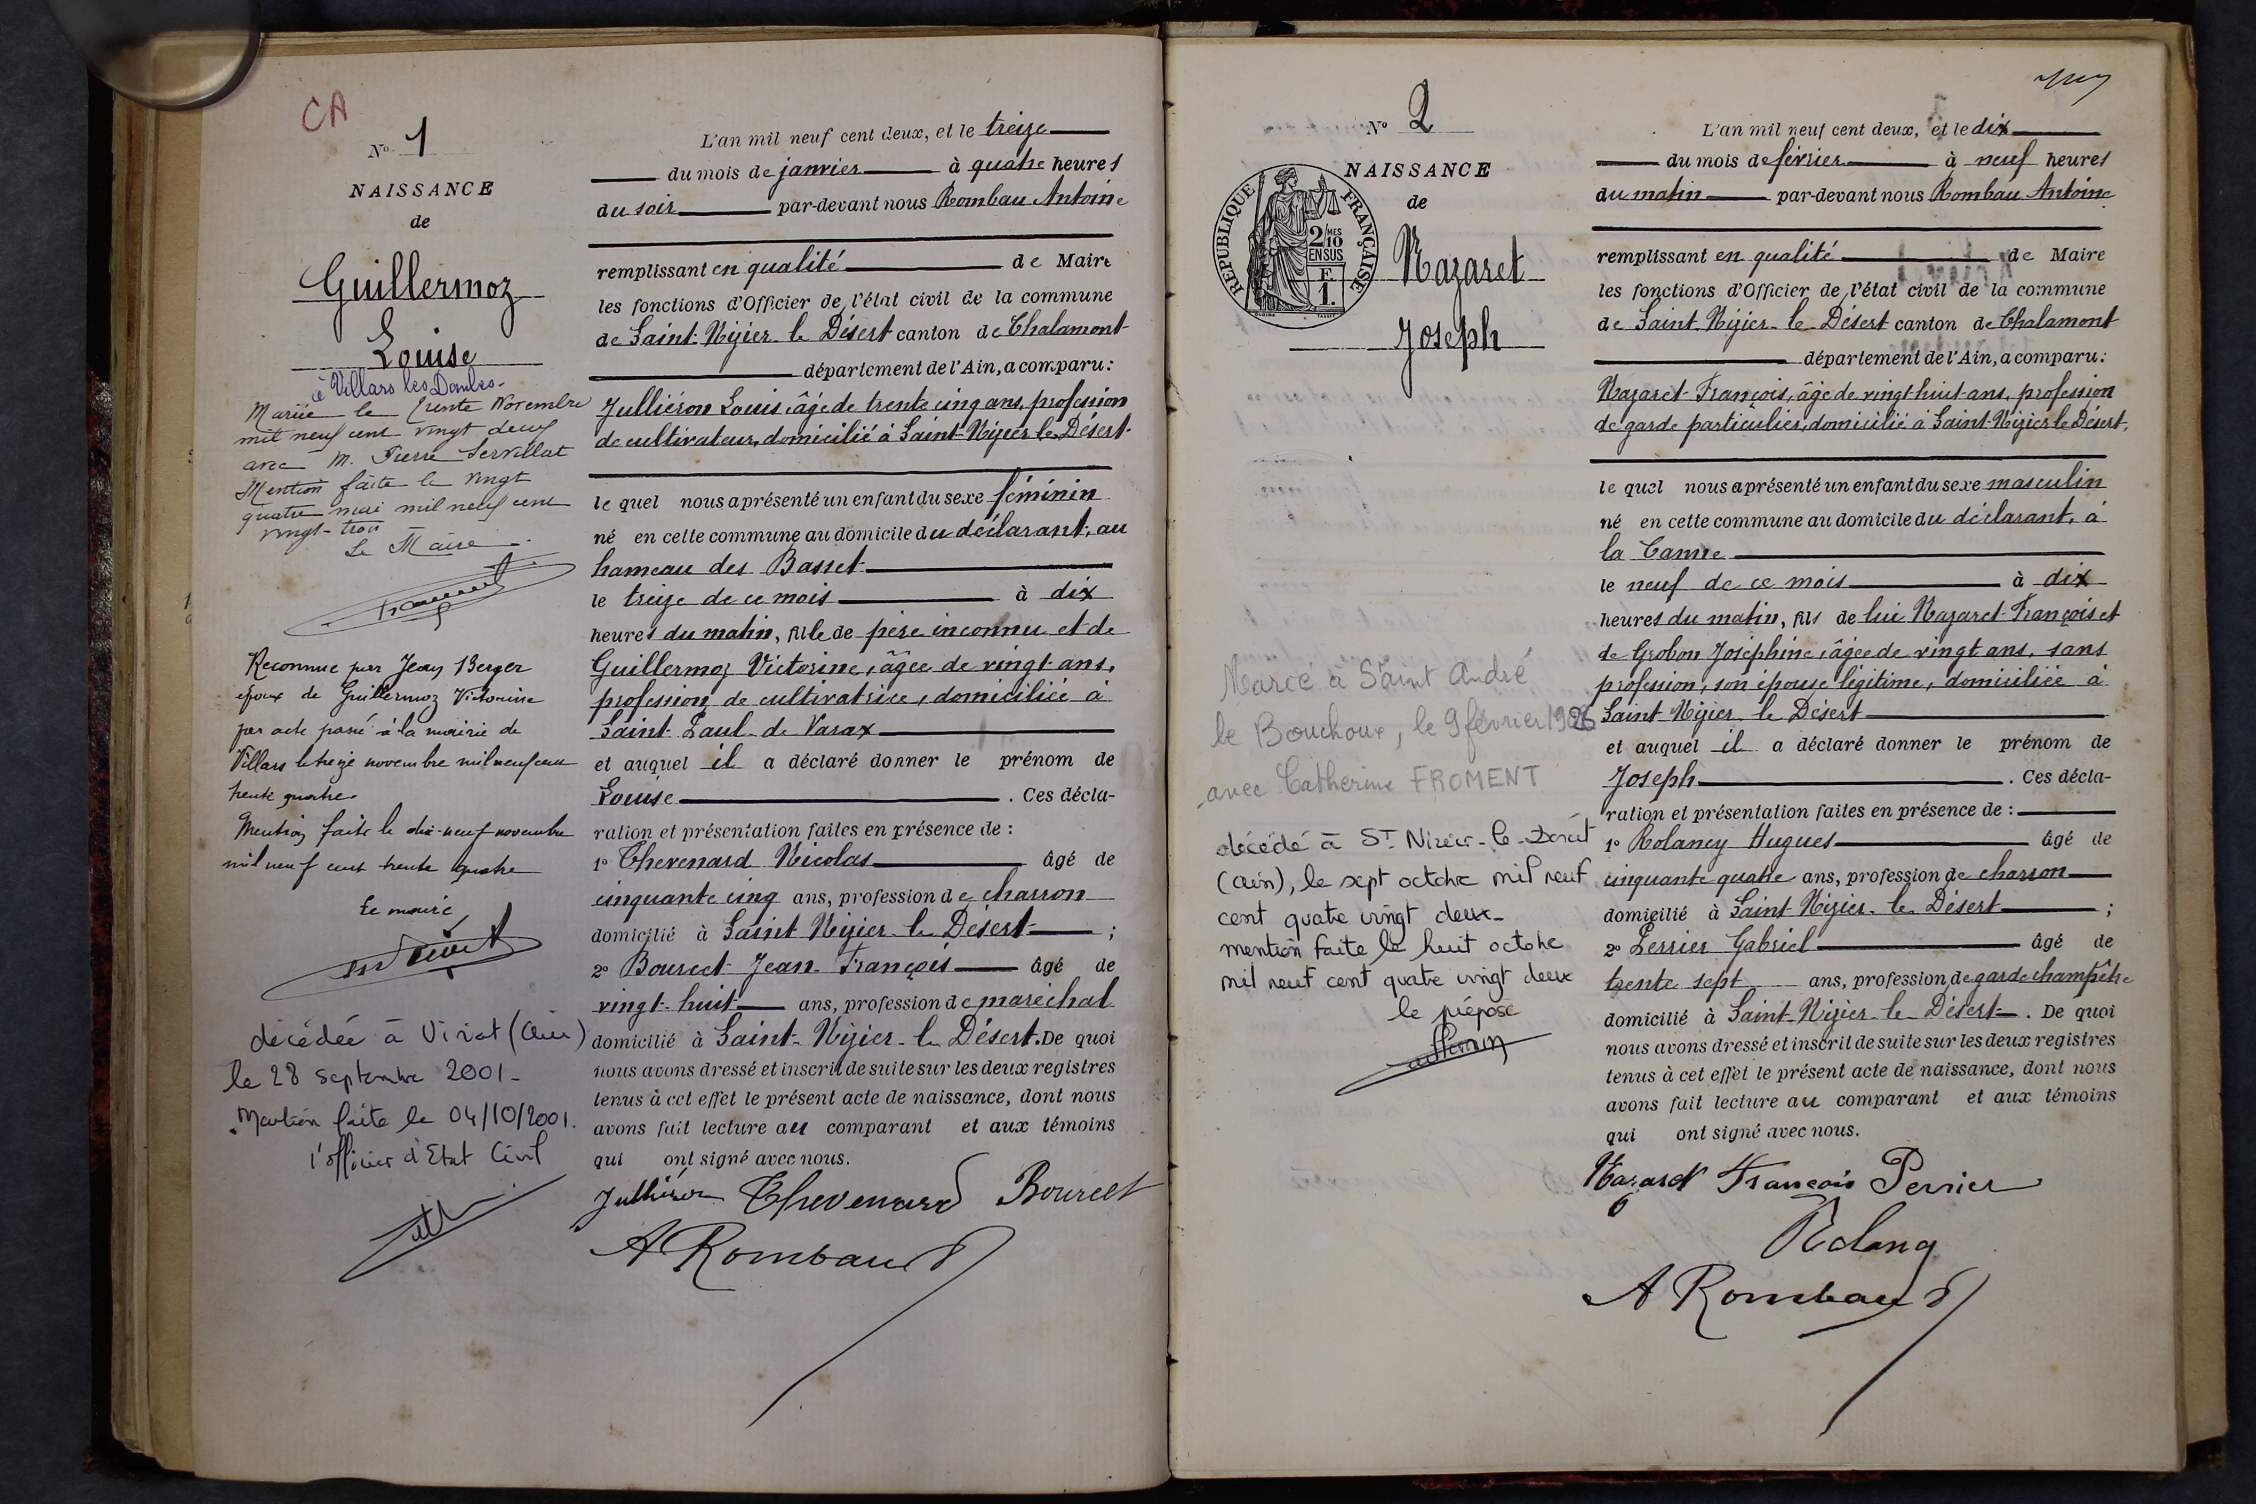 CA
N° 1
NAISSANCE
de
Guillermoz
Louise
à Villars les Dombes.
Mariée le trente Novembre
mil neuf cent vingt deux
avec M. Pierre Servillat
Mention faite le vingt
quatre mai mil neuf cent
vingt-trois
Le Maire
Reconnue par Jean Berger
époux de Guillermoz Victorine
par acte passé à la mairie de
Villars le treize novembre mil neuf cent
trente quatre.
Mention faite le dix-neuf novembre
mil neuf cent trente quatre
Le maire
décédée à Viriat (Ain)
le 28 septembre 2001-
Mention faite le 04/10/2001.
l'officier d'Etat Civil
L'an mil neuf cent deux, et le treize
du mois de janvier à quatre heures
du soir par-devant nous Rombau Antoine
remplissant en qualité de Maire
les fonctions d'Officier de l'état civil de la commune
de Saint-Nizier-le Désert canton de Chalamont
département de l'Ain, a comparu:
Julliéron Louis, âgé de trente cinq ans, profession
de cultivateur, domicilié à Saint-Nizier le Désert.
le quel nous a présenté un enfant du sexe féminin
né en cette commune au domicile du déclarant, au
hameau des Basset
le treize de ce mois à dix
heures du matin, fille de père inconnu et de
Guillermoz Victorine, âgée de vingt ans,
profession de cultivatrice, domiciliée à
Saint-Paul-de Varax
et auquel il a déclaré donner le prénom de
Louise . Ces décla-
ration et présentation faites en présence de :
1° Thevenard Nicolas âgé de
cinquante cinq ans, profession de charron
domicilié à Saint Nizier-le Désert ;
2° Bourcet Jean-François âgé de
vingt-huit ans, profession de maréchal
domicilié à Saint-Nizier-le Désert. De quoi
nous avons dressé et inscrit de suite sur les deux registres
tenus à cet effet le présent acte de naissance, dont nous
avons fait lecture au comparant et aux témoins
qui ont signé avec nous.
Julliéron Thevenard Bourcet
A Rombaud
N° 2
NAISSANCE
de
REPUBLIQUE FRANÇAISE
2 MES
10
EN SUS
F.
1.
Nazaret
Joseph
Marié à Saint André
le Bouchoux, le 9 février 1926
avec Catherine FROMENT
décédé à St Nizier-le-Désert
(Ain), le sept octobre mil neuf
cent quatre vingt deux-
mention faite le huit octobre
mil neuf cent quatre vingt deux
le préposé
L'an mil neuf cent deux, et le dix
du mois de février à neuf heures
du matin par-devant nous Rombau Antoine
remplissant en qualité de Maire
les fonctions d'Officier de l'état civil de la commune
de Saint Nizier-le-Désert canton de Chalamont
département de l'Ain, a comparu:
Nazaret François, âgé de vingt-huit ans, profession
de garde particulier, domicilié à Saint-Nizier le Désert.
le quel nous a présenté un enfant du sexe masculin
né en cette commune au domicile du déclarant, à
la
le neuf de ce mois à dix
heures du matin, fils de lui Nazaret François et
de Grobon Joséphine, âgée de vingt ans, sans
profession, son épouse légitime, domiciliée à
Saint-Nizier-le Désert
et auquel il a déclaré donner le prénom de
Joseph . Ces décla-
ration et présentation faites en présence de :
1° Rolancy Hugues âgé de
cinquante quatre ans, profession de charron
domicilié à Saint Nizier-le-Désert ;
2° Perrier Gabriel âgé de
trente sept ans, profession de garde champêtre
domicilié à Saint-Nizier-le-Désert . De quoi
nous avons dressé et inscrit de suite sur les deux registres
tenus à cet effet le présent acte de naissance, dont nous
avons fait lecture au comparant et aux témoins
qui ont signé avec nous.
Nazaret François Perrier
A Rombaud